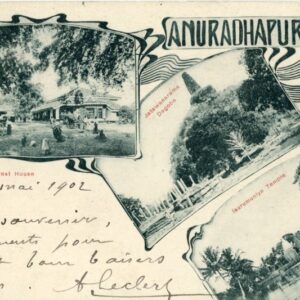 ANURADHAPUR
Jetawanarama
Dagoba
Isurumuniya Temple
House
mai 1902
souvenir,
pour
baisers
A Leclerc